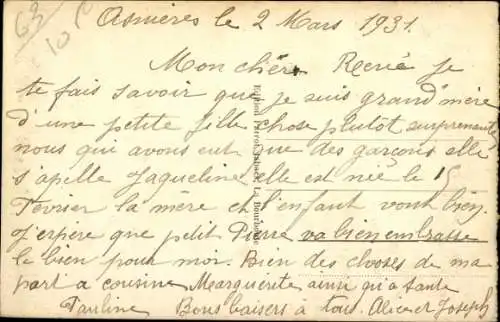 Asnières le 2 Mars 1931.
Mon chèr René je
te fais savoir que je suis grand'mère
d'une petite fille chose plutôt surprenante
nous qui avons eut que des garçons elle
s'apelle Jaqueline elle est née le 15
Février la mère et l'enfant vont bien.
J'espère que petit Pierre va bien embrasse
le bien pour moi. Bien des choses de ma
part a cousine Marguerite ainsi qu'a tante
Pauline Bons baisers à tous. Alice et Joseph
63
10